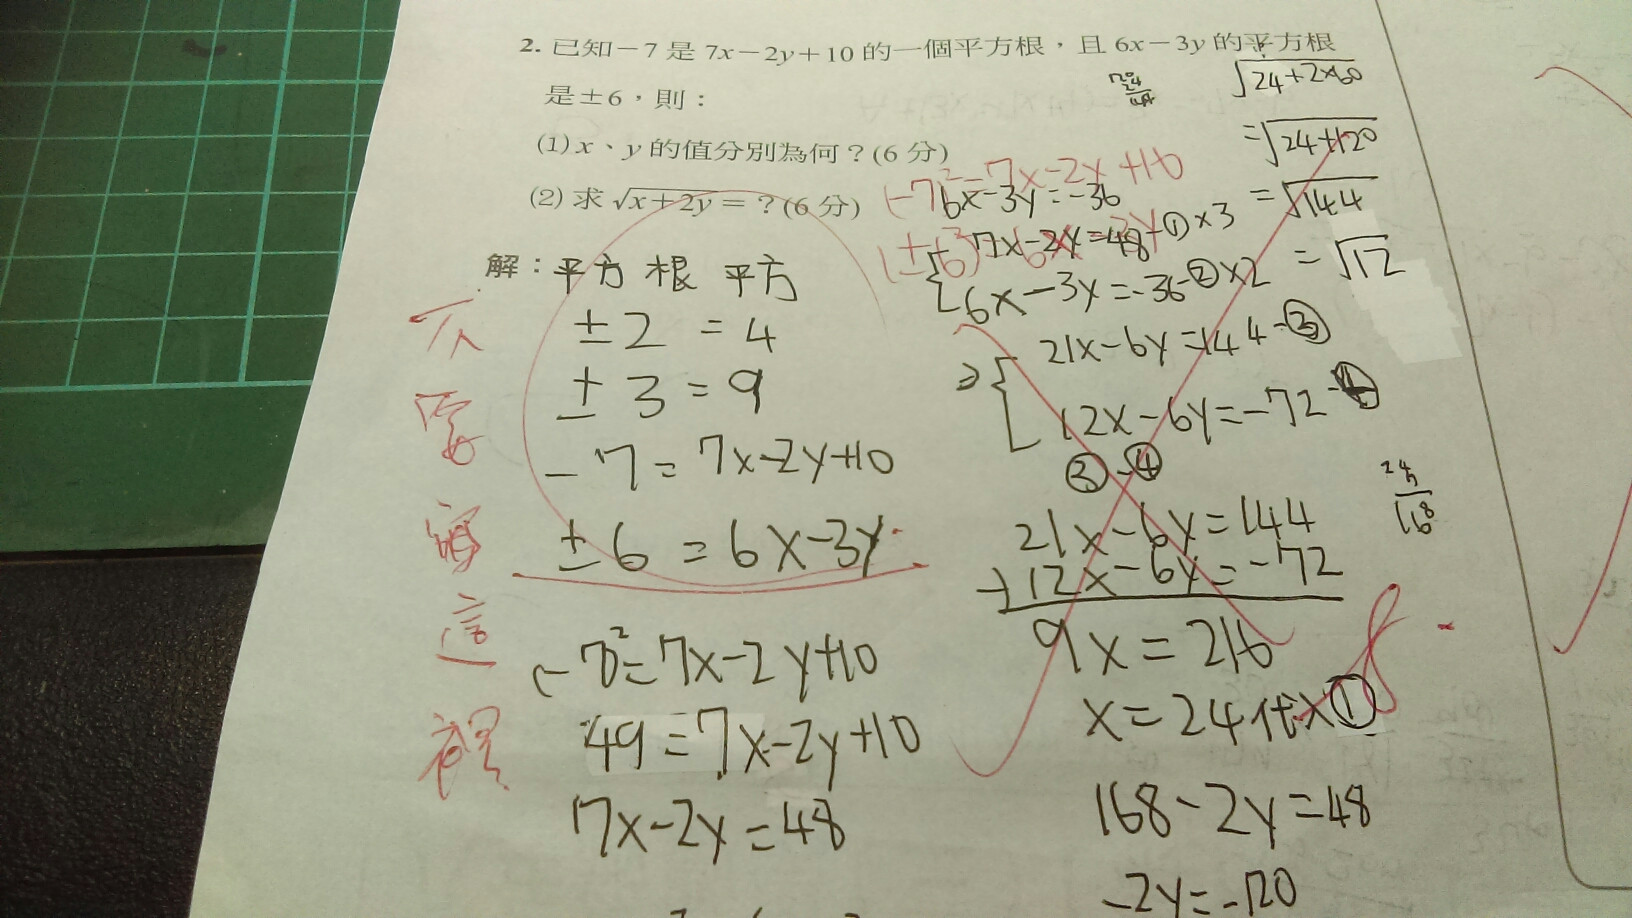 2. 已知－7 是 7x－2y＋10 的一個平方根，且 6x－3y 的平方根
是±6，則：
(1) x、y 的值分別為何？(6 分)
(2) 求 √x＋2y ＝？(6 分)
解：平方根 平方
±2 = 4
±3 = 9
-7 = 7x-2y+10
±6 = 6x-3y
(-7²=7x-2y+10
49=7x-2y+10
7x-2y=48
不
需
寫
這
裡
(-7²=7x-2y+10
6x-3y=-36
{ 7x-2y=48-①×3
6x-3y=-36-②×2
⇒{ 21x-6y=144-③
12x-6y=-72-④
③-④
21x-6y=144
-)12x-6y=-72
9x=216
x=24代入①
168-2y=48
-2y=-120
√24+2×60
=√24+120
=√144
=√12
8
24
168